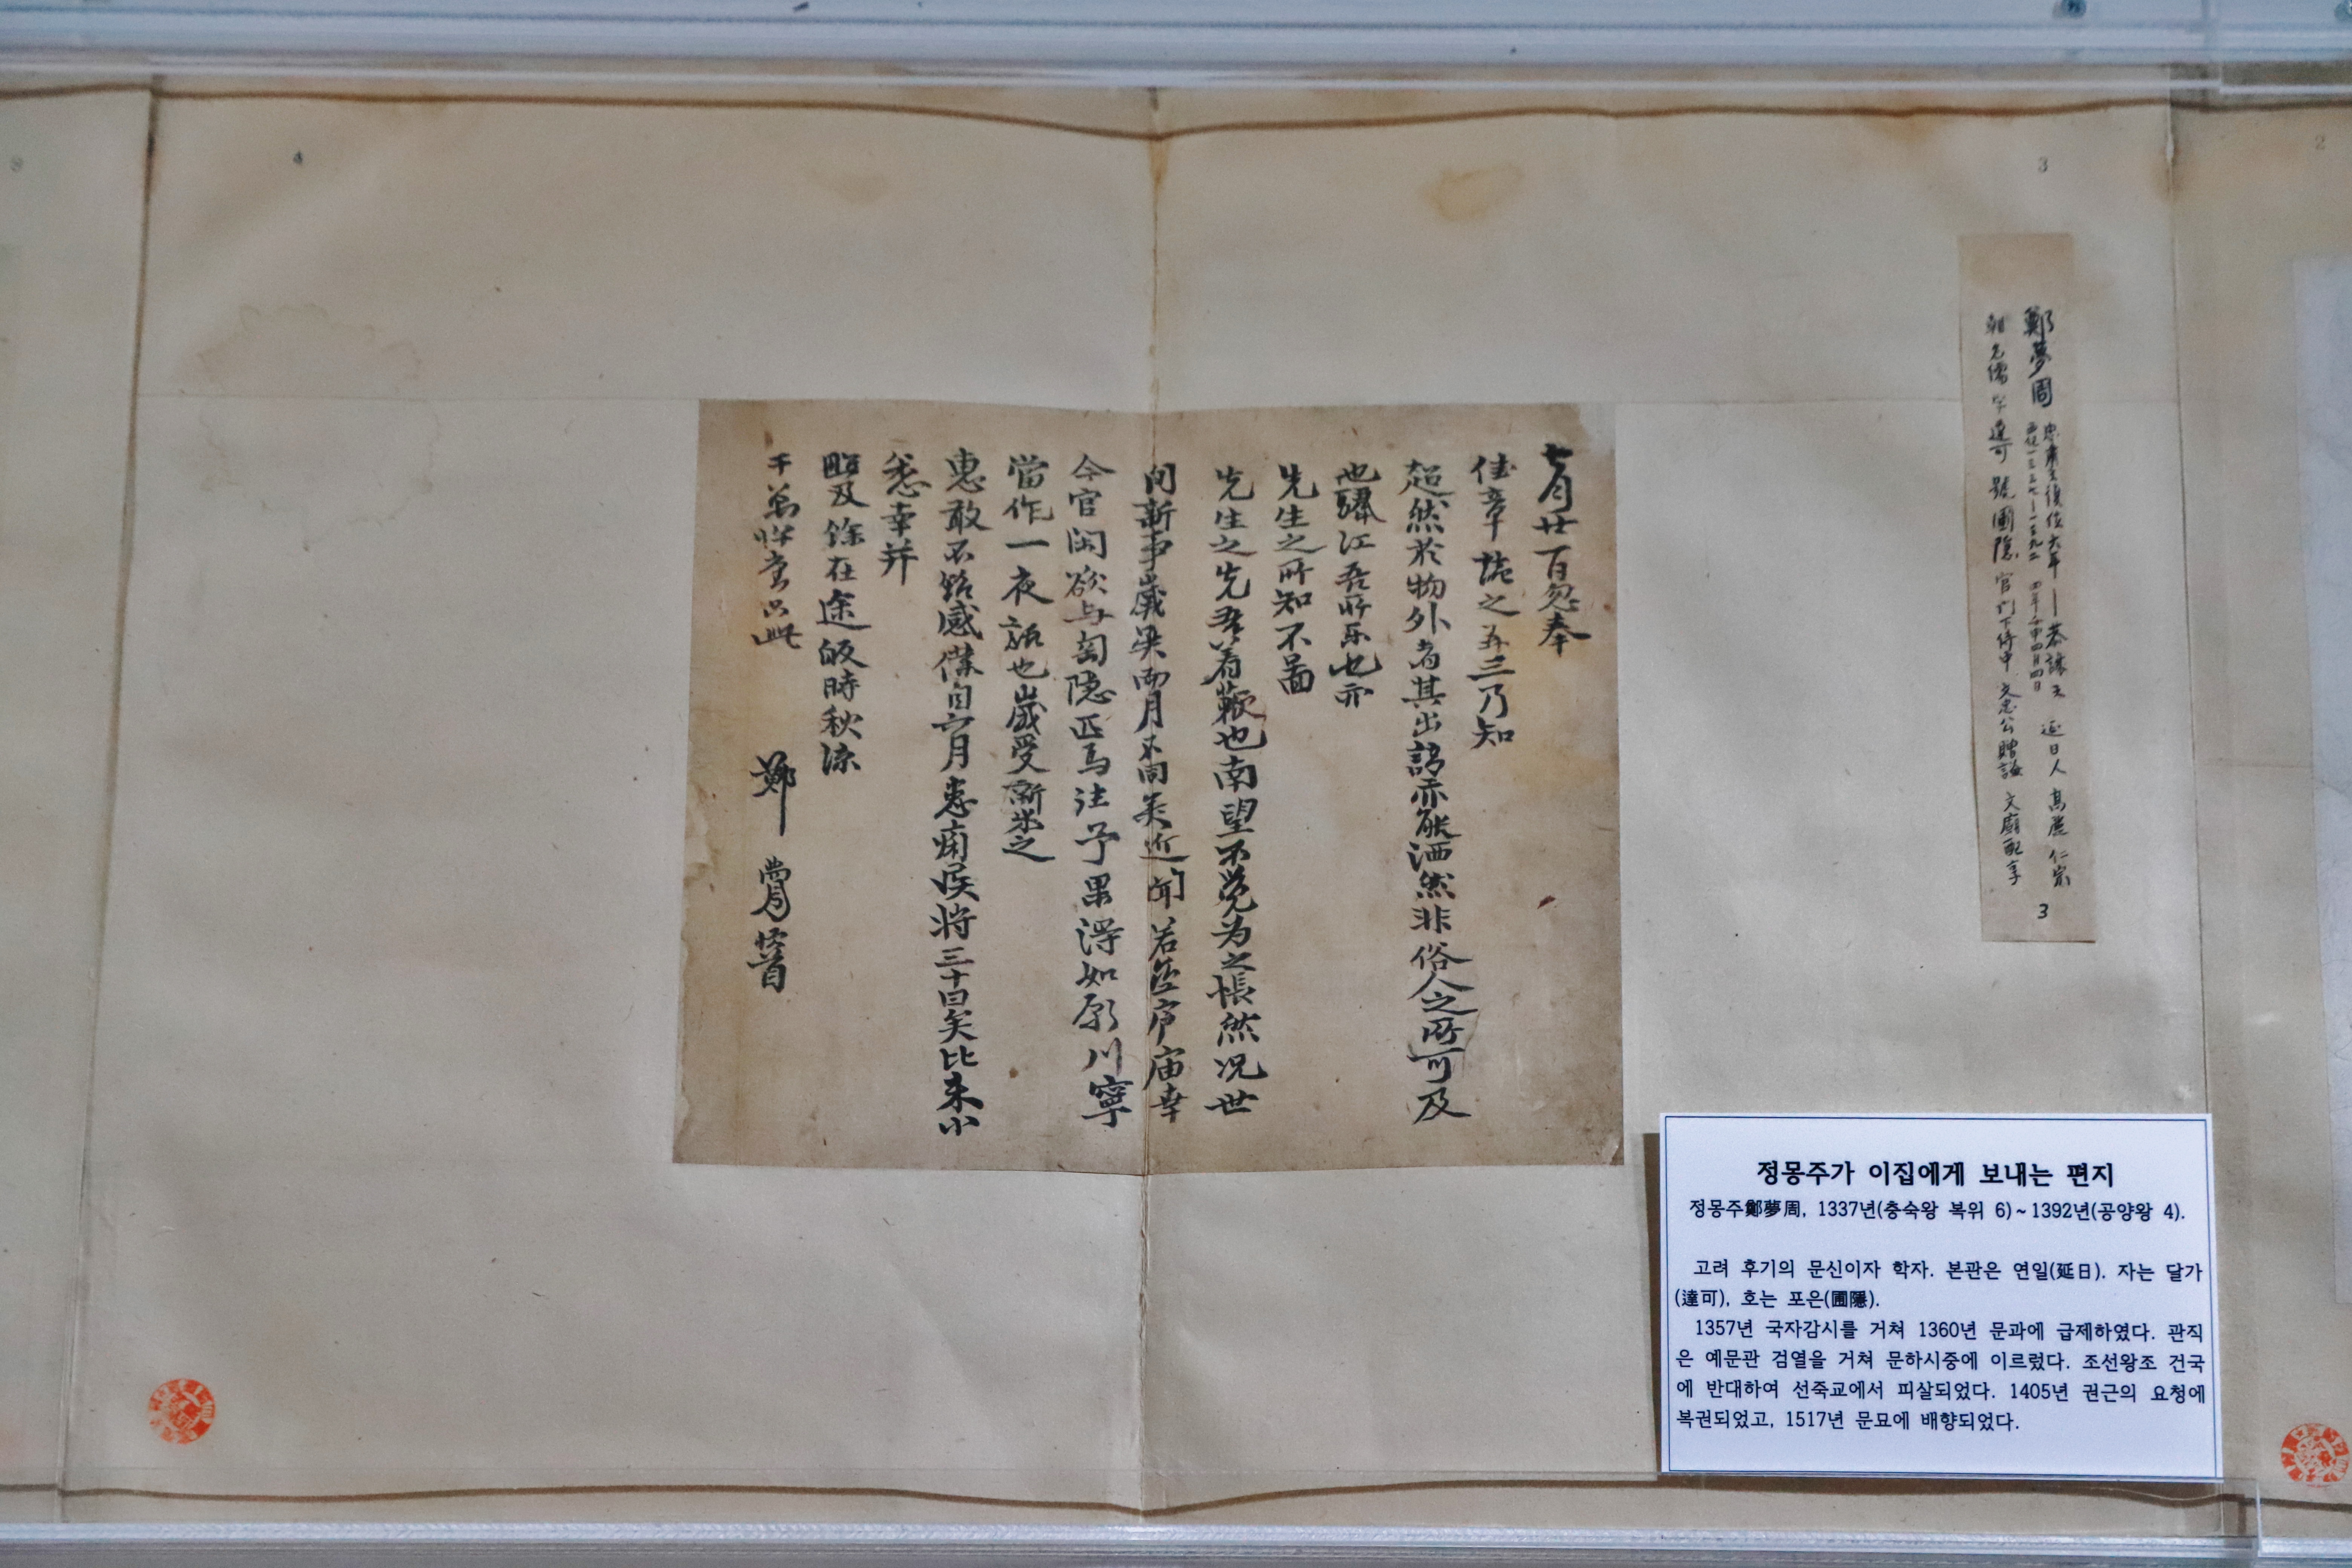 鄭夢周
朝 名儒 字 達可 號 圃隱 官 門下侍中 文忠公 贈諡 文廟配享
3
3
4
2
七月廿一日忽奉
佳章 讀之再三乃知
超然於物外者其出語亦能洒然非俗人之所可及
也驪江吾所樂也亦
先生之所知不啚
先生之先吾着鞭也南望不覺为之悵然况世
間新事歲與雨月不同矣近聞若齋庐庙幸
今官閑欲与陶隐匹馬注予果淂如願川寧
當作一夜話也歲受新米之
惠敢不銘感僕自六月患痢疾將三十日矣比来小
愈幸并
照及餘在途皈時秋凉
千萬 只此
鄭 夢周 頓首
정몽주가 이집에게 보내는 편지
정몽주鄭夢周, 1337년(충숙왕 복위 6)~1392년(공양왕 4).
고려 후기의 문신이자 학자. 본관은 연일(延日). 자는 달가
(達可), 호는 포은(圃隱).
1357년 국자감시를 거쳐 1360년 문과에 급제하였다. 관직
은 예문관 검열을 거쳐 문하시중에 이르렀다. 조선왕조 건국
에 반대하여 선죽교에서 피살되었다. 1405년 권근의 요청에
복권되었고, 1517년 문묘에 배향되었다.